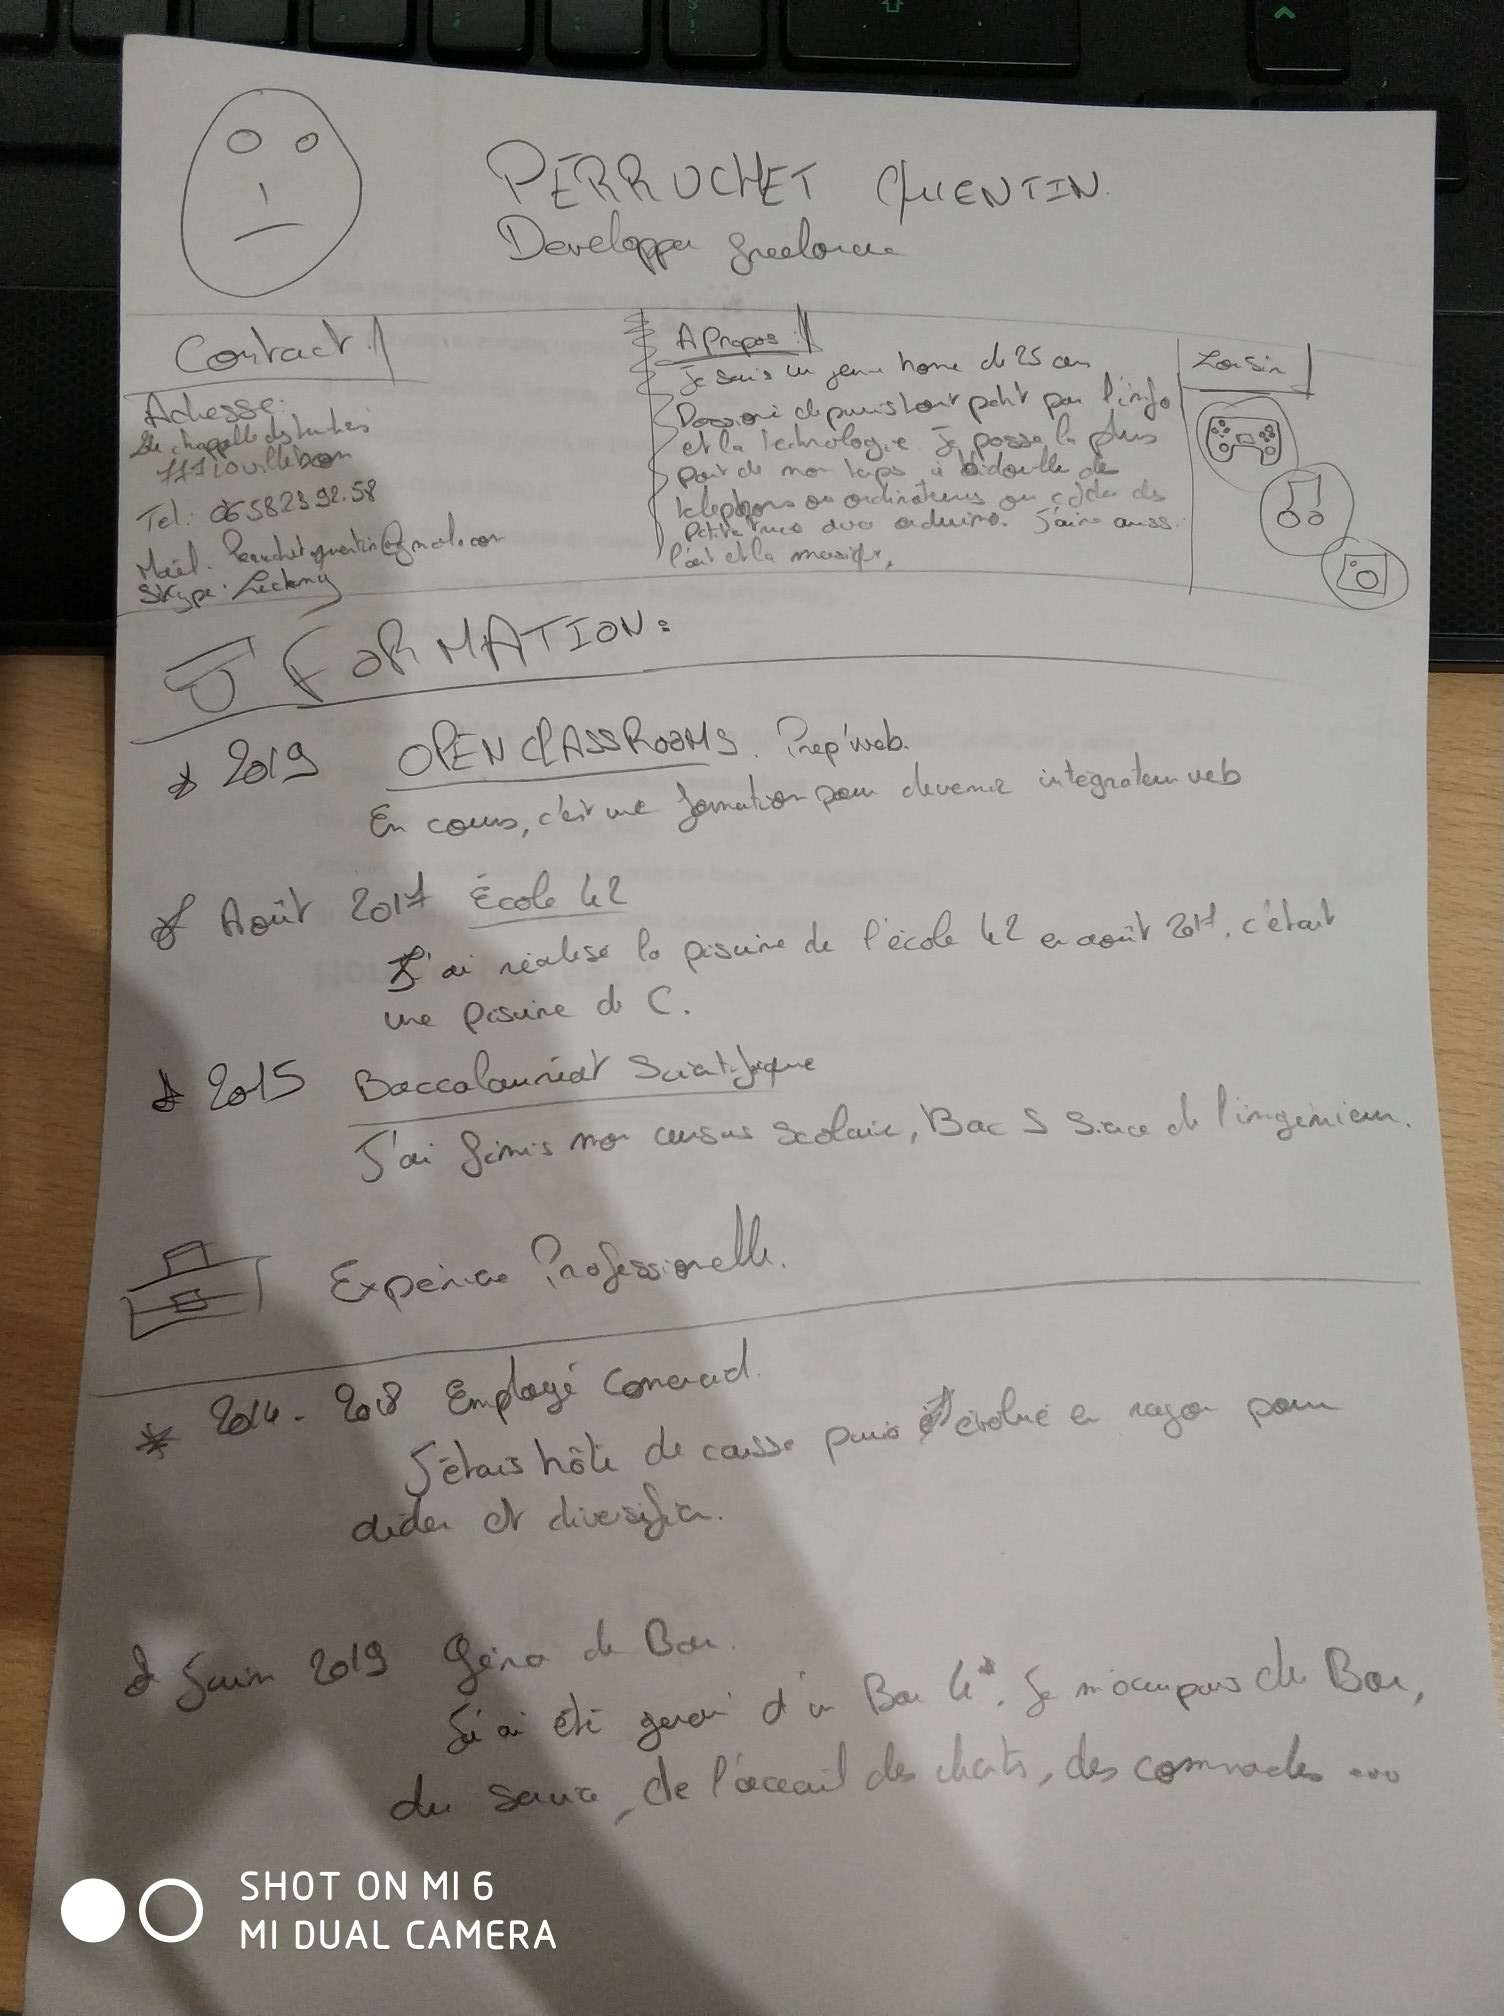 PERRUCHET QUENTIN
Developper freelance
Contact
Adresse:
chappelle des
77710 villebéon
Tel: 06 58 23 92.58
Mail: Perruchetquentin@gmail.com
Skype:
A Propos :
Je suis un jeune home de 25 ans
Passioné depuis tout petit par l'info
et la technologie Je passe la plus
part de mon temps à bidouille de
telephons ou ordinateurs ou coder des
Petits trucs avec arduino. J'aime aussi
l'art et la musique.
Loisir
FORMATION:
2019 OPENCLASSROOMS. Prep'web.
En cours, c'est une formation pour devenir intégrateur web
Août 2017 École 42
J'ai réalisé la piscine de l'école 42 en août 2017. c'était
une piscine de C.
2015 Baccalauréat Scientifique
J'ai finis mon cursus scolaire, Bac S Science de l'ingénieur.
Expérience Professionelle.
* 2014 - 2018 Employé comercial.
J'étais hôte de caisse puis évolué en rayon pour
aider et diversifier.
Juin 2019 Géran de Bar.
J'ai été gérant d'un Bar 4*. Je m'ocupais du Bar,
du service, de l'acceuil des clients, des commandes ...
SHOT ON MI 6
MI DUAL CAMERA